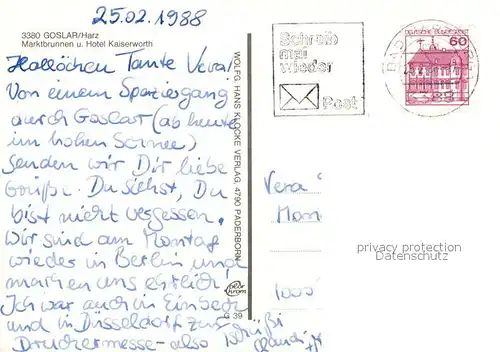 25.02.1988
3380 GOSLAR/Harz
Marktbrunnen u. Hotel Kaiserworth
Hallöchen Tante Vera!
Von einem Spaziergang
durch Goslar (ab heute
im hohen Schnee)
senden wir Dir liebe
Grüße. Du siehst, Du
bist nicht vergessen.
Wir sind am Montag
wieder in Berlin und
machen uns ehrlich.
Ich war auch in Einbeck
und in Düsseldorf zur
Druckermesse – also tschüßi
WOLFG. HANS KLOCKE VERLAG, 4790 PADERBORN
G 39
Schreib
mal
wieder
Post
DEUTSCHE BUNDESPOST
60
BAD
88
Vera
1000
privacy protection
Datenschutz